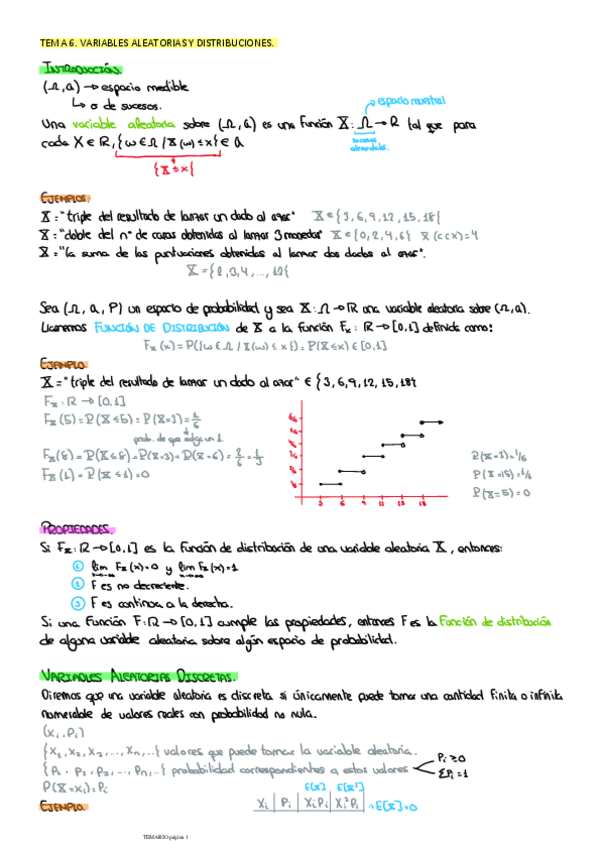 TEMA 6. VARIABLES ALEATORIAS Y DISTRIBUCIONES.
INTRODUCCIÓN.
(Ω, a) → espacio medible
↳ σ de sucesos.
espacio muestral
Una variable aleatoria sobre (Ω, a) es una función X: Ω → R tal que para
sucesos elementales.
cada X ∈ R, {ω ∈ Ω / X(ω) ≤ x} ∈ a
{X ≤ x}
EJEMPLOS:
X = "triple del resultado de lanzar un dado al azar" X ∈ {3, 6, 9, 12, 15, 18}
X = "doble del nº de caras obtenidas al lanzar 3 monedas" X ∈ {0, 2, 4, 6} X(ccx) = 4
X = "la suma de las puntuaciones obtenidas al lanzar dos dados al azar".
X = {2, 3, 4, ..., 12}
Sea (Ω, a, P) un espacio de probabilidad y sea X: Ω → R una variable aleatoria sobre (Ω, a).
Llamemos FUNCIÓN DE DISTRIBUCIÓN de X a la función Fx: R → [0,1] definida como:
Fx(x) = P({ω ∈ Ω / X(ω) ≤ x}) = P(X ≤ x) ∈ [0,1]
EJEMPLO.
X = "triple del resultado de lanzar un dado al azar" ∈ {3, 6, 9, 12, 15, 18}
Fx: R → [0,1]
Fx(5) = P(X ≤ 5) = P(X=3) = 1/6
prob. de que salga un 1
Fx(8) = P(X ≤ 8) = P(X=3) + P(X=6) = 2/6 = 1/3
Fx(1) = P(X ≤ 1) = 0
3 6 9 12 15 18
P(X=3) = 1/6
P(X=15) = 1/6
P(X=5) = 0
PROPIEDADES.
Si Fx: R → [0,1] es la función de distribución de una variable aleatoria X, entonces:
① lim Fx(x) = 0 y lim Fx(x) = 1
② F es no decreciente.
③ F es continua a la derecha.
Si una función F: R → [0,1] cumple las propiedades, entonces F es la función de distribución
de alguna variable aleatoria sobre algún espacio de probabilidad.
VARIABLES ALEATORIAS DISCRETAS.
Diremos que una variable aleatoria es discreta si únicamente puede tomar una cantidad finita o infinita
numerable de valores reales con probabilidad no nula.
(xi, Pi)
{x1, x2, x3, ..., xn, ...} valores que puede tomar la variable aleatoria.
{P1, P2, P3, ..., Pn, ...} probabilidad correspondientes a estos valores
Pi ≥ 0
ΣPi = 1
P(X = xi) = Pi
E[X] E[X²]
EJEMPLO.
xi | Pi | xiPi | xi²Pi
→ E[X] = 0
TEMARIO página 1